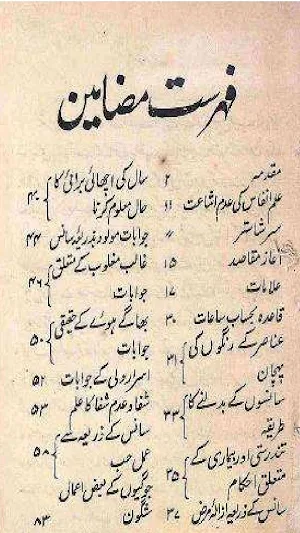 فہرست مضامین
مقدمہ ۲
علم انفاس کی عدم اشاعت ۱۱
سر شاستر 〃
آغاز مقاصد ۱۵
علامات ۱۷
قاعدہ بحساب ساعات ۳۰
عناصر کے رنگوں کی
پہچان ۳۱
سانسوں کے بدلنے کا
طریقہ ۳۳
تندرستی اور بیماری کے
متعلق احکام ۳۵
سانس کے ذریعہ ازالہ مرض ۳۷
سال کی اچھائی برائی کا
حال معلوم کرنا ۴۰
جوابات مولود بذریعہ سانس ۴۴
غالب مغلوب کے متعلق
جوابات ۴۶
بھاگے ہوئے کے حقیقی
جوابات ۵۰
اسرار ولی کے جوابات ۵۲
شفا و عدم شفا کا علم ۵۳
سانس کے ذریعہ سے
عمل حب ۵۸
جوگیوں کے بعض اعمال
شگون ۸۳